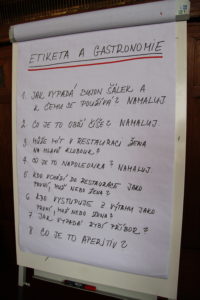 ETIKETA A GASTRONOMIE
1. JAK VYPADÁ ŠÁLEK A
K ČEMU SE POUŽÍVÁ? NAMALUJ
2. CO JE TO OBŘÍ ČÍŠE? NAMALUJ
3. MŮŽE MÍT V RESTAURACI ŽENA
NA HLAVĚ KLOBOUK?
4. CO JE TO NAPOLEONKA? NAMALUJ
5. KDO VCHÁZÍ DO RESTAURACE JAKO
PRVNÍ, MUŽ NEBO ŽENA?
6. KDO VYSTUPUJE Z VÝTAHU JAKO
PRVNÍ, MUŽ NEBO ŽENA?
7. JAK VYPADÁ RYBÍ PŘÍBOR?
8. CO JE TO APERITIV?